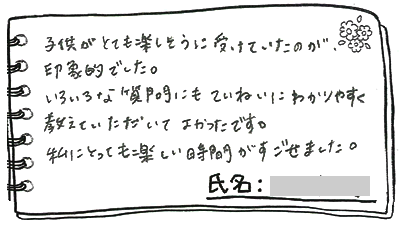 子供がとても楽しそうに受けていたのが、
印象的でした。
いろいろな質問にもていねいにわかりやすく
教えていただいてよかったです。
私にとっても楽しい時間がすごせました。
氏名：